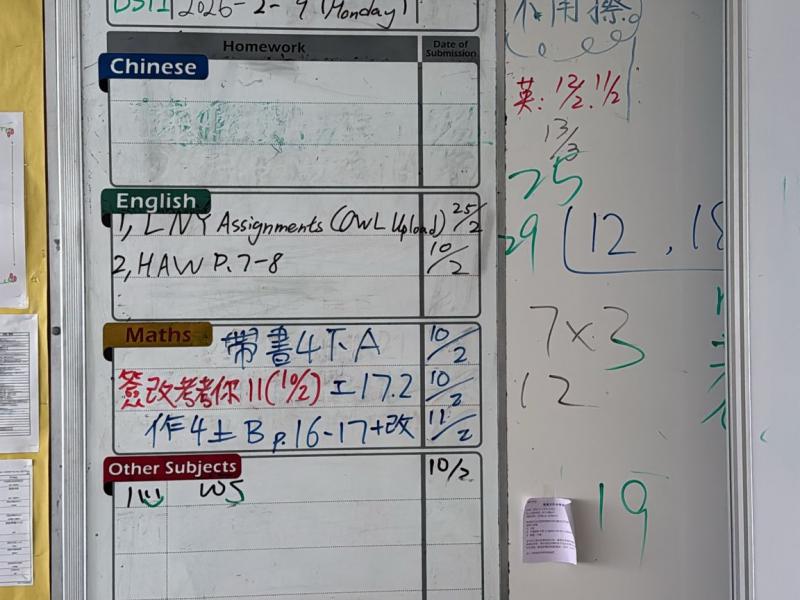 2026-2-9 (Monday)
不用擦
Homework
Date of Submission
Chinese
英: 12/2, 11/2
13/3
25
English
1, LNY Assignments (OWL Upload) 25/2
29
12, 18
2, HAW P. 7-8 10/2
Maths
帶書4下A 10/2
7×3
簽改考考你11(10/2) 工17.2 10/2
12
作4上B p.16-17+改 11/2
Other Subjects
WS 10/2
19